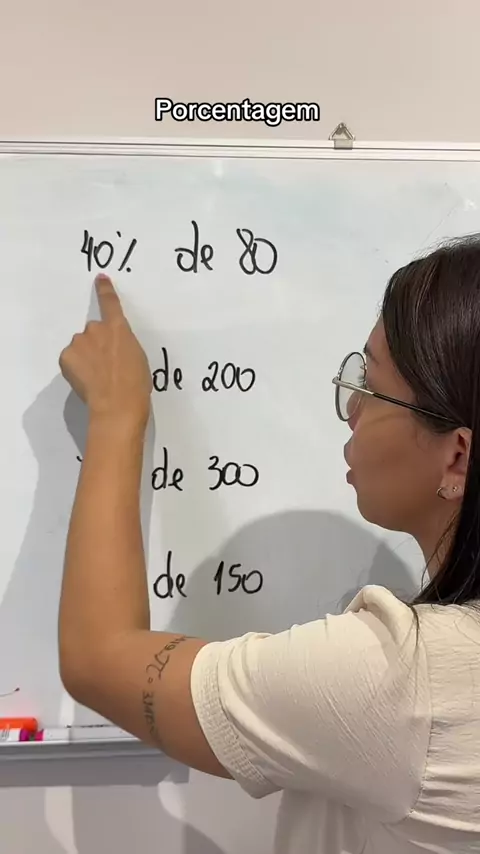 Porcentagem
40% de 80
de 200
de 300
de 150